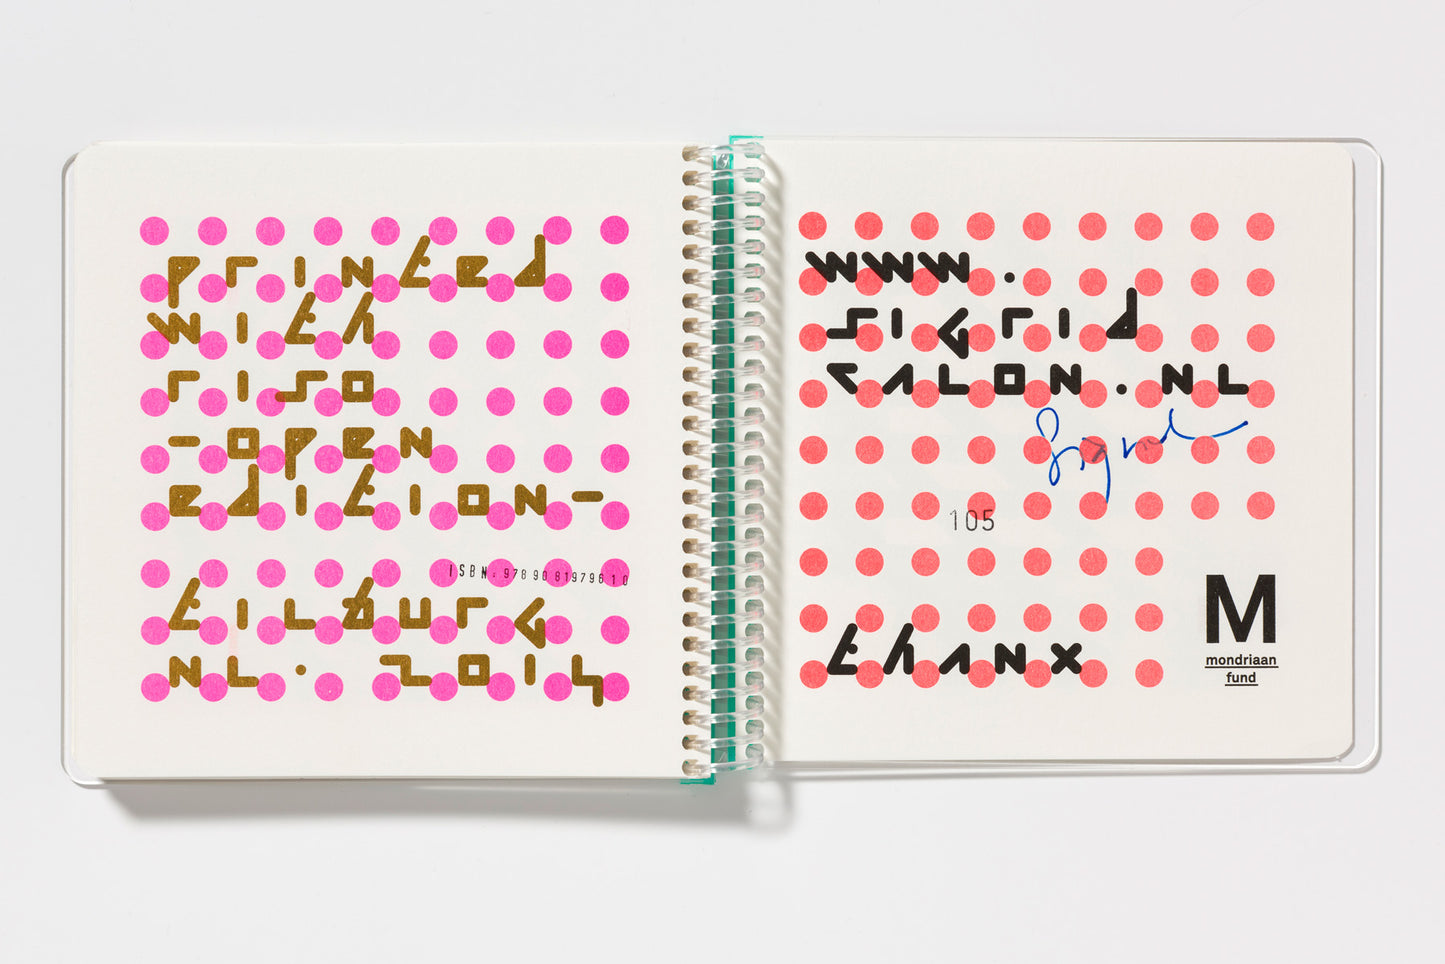 printed
with
riso
-open
edition-
ISBN: 978 90 8197961 0
tilburg
NL. 2014
www.
sigrid
calon.nl
Sigrid
105
thanx
M
mondriaan
fund